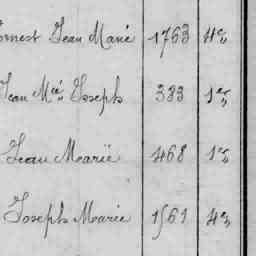 Ernest Jean Marie 1763 4e
Jean Mie Joseph 383 1er
Jean Marie 468 1er
Joseph Marie 1561 4e